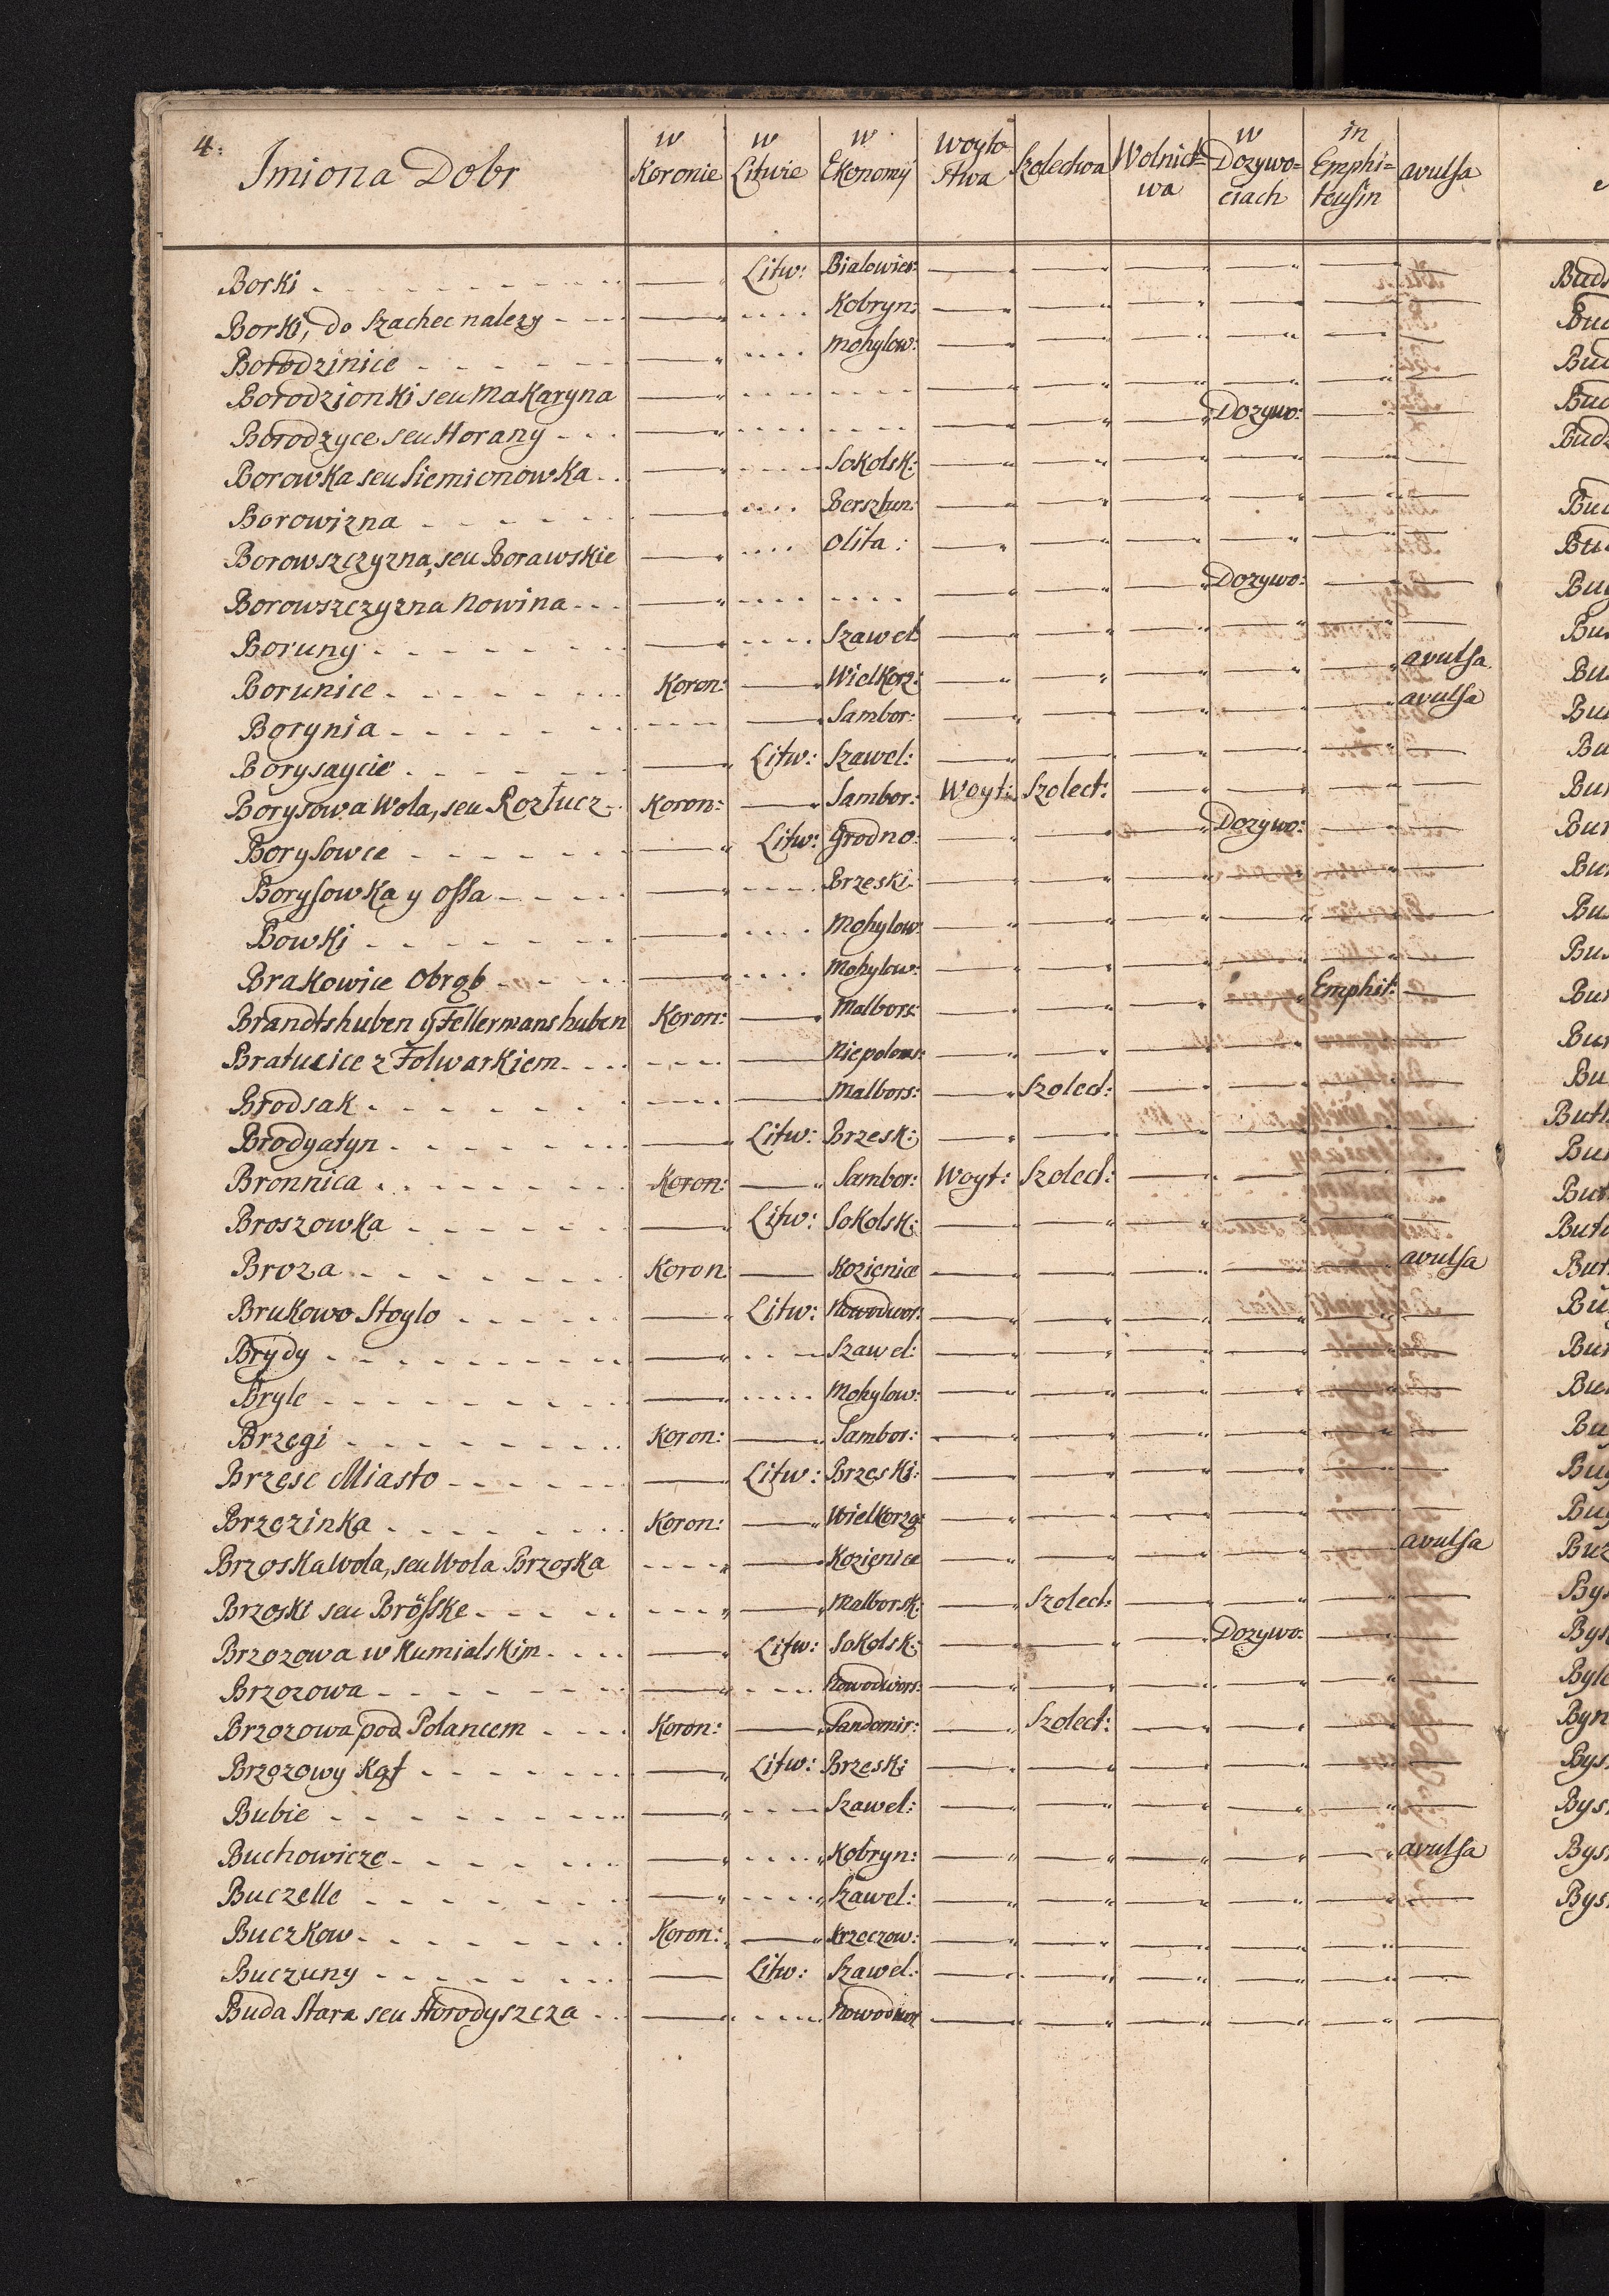 4:
Imiona Dobr | w Koronie | w Litwie | w Ekonomÿ | Woyto- stwa | Szolectwa | Wolnict- wa | w Dozywo= ciach | in Emphi= teusin | avulsa
Borki | — | Litw: | Bialowies: | — | — | — | — | — | —
Borki, do Szachec nalezy | — | .... | Kobryn: | — | — | — | — | — | —
Borodzinice | — | .... | Mohylow: | — | — | — | — | — | —
Borodzionki seu Makaryna | — | .... | .... | — | — | — | — | — | —
Borodzyce seu Horany | — | .... | .... | — | — | — | Dozywo: | — | —
Borowka seu Siemionowka | — | .... | Sokolsk: | — | — | — | — | — | —
Borowizna | — | .... | Bersztun: | — | — | — | — | — | —
Borowszczyzna, seu Borawskie | — | .... | Olita: | — | — | — | — | — | —
Borowszczyzna Nowina | — | .... | .... | — | — | — | Dozywo: | — | —
Boruny | — | .... | Szawel | — | — | — | — | — | —
Borunice | Koron: | — | Wielkorz: | — | — | — | — | — | avulsa
Borynia | .... | — | Sambor: | — | — | — | — | — | avulsa
Borysaycie | — | Litw: | Szawel: | — | — | — | — | — | —
Borysowa Wola, seu Rozłucz | Koron: | — | Sambor: | Woyt: | Szolect: | — | — | — | —
Borysowce | — | Litw: | Grodno: | — | — | — | Dozywo: | — | —
Borysowka y Ossa | — | .... | Brzeski: | — | — | — | — | — | —
Bowki | — | .... | Mohylow: | — | — | — | — | — | —
Brakowice Obrąb | — | .... | Mohylow: | — | — | — | — | — | —
Brandtshuben ÿ Fellermanshuben | Koron: | — | Malbors: | — | — | — | — | Emphit: | —
Bratucice z Folwarkiem | .... | — | Niepolom: | — | — | — | — | — | —
Brodsak | .... | — | Malbors: | — | Szolect: | — | — | — | —
Brodyatyn | — | Litw: | Brzesk: | — | — | — | — | — | —
Bronnica | Koron: | — | Sambor: | Woyt: | Szolect: | — | — | — | —
Broszowka | — | Litw: | Sokolsk: | — | — | — | — | — | —
Broza | Koron | — | Kozienice | — | — | — | — | — | avulsa
Brukowo Stoylo | — | Litw: | Nowodwor: | — | — | — | — | — | —
Brydy | — | .... | Szawel: | — | — | — | — | — | —
Bryle | — | .... | Mohylow: | — | — | — | — | — | —
Brzegi | Koron: | — | Sambor: | — | — | — | — | — | —
Brzesc Miasto | — | Litw: | Brzeski: | — | — | — | — | — | —
Brzezinka | Koron: | — | Wielkorzą: | — | — | — | — | — | —
Brzoska Wola, seu Wola Brzoska | .... | — | Kozienice | — | — | — | — | — | avulsa
Brzoski seu Brösske | .... | — | Malborsk: | — | Szolect: | — | — | — | —
Brzozowa w Kumialskim | — | Litw: | Sokolsk: | — | — | — | Dozywo: | — | —
Brzozowa | — | .... | Nowodwors: | — | — | — | — | — | —
Brzozowa pod Polancem | Koron: | — | Sandomir: | — | Szolect: | — | — | — | —
Brzozowy Kąt | — | Litw: | Brzeski | — | — | — | — | — | —
Bubie | — | .... | Szawel: | — | — | — | — | — | —
Buchowicze | — | .... | Kobryn: | — | — | — | — | — | avulsa
Buczelle | — | .... | Szawel: | — | — | — | — | — | —
Buczkow | Koron: | — | Krzeczow: | — | — | — | — | — | —
Buczuny | — | Litw: | Szawel: | — | — | — | — | — | —
Buda Stara seu Horodyszcza | — | .... | Nowodwor | — | — | — | — | — | —